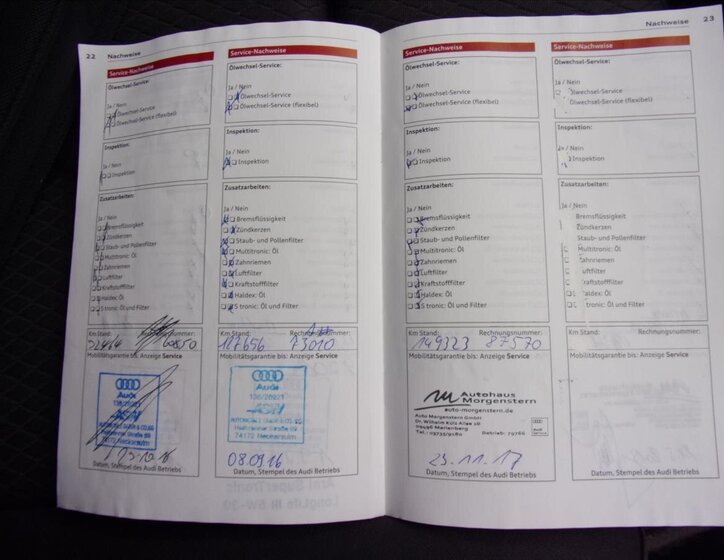 22 Nachweise
Service-Nachweise
Ölwechsel-Service:
Ja / Nein
Ölwechsel-Service
Ölwechsel-Service (flexibel)
Inspektion:
Ja / Nein
Inspektion
Zusatzarbeiten:
Ja / Nein
Bremsflüssigkeit
Zündkerzen
Staub- und Pollenfilter
Multitronic: Öl
Zahnriemen
Luftfilter
Kraftstofffilter
Haldex: Öl
S tronic: Öl und Filter
Km Stand: Rechnungsnummer:
Mobilitätsgarantie bis: Anzeige Service
Audi
74172 Neckarsulm
Datum, Stempel des Audi Betriebs
Service-Nachweise
Ölwechsel-Service:
Ja / Nein
Ölwechsel-Service
Ölwechsel-Service (flexibel)
Inspektion:
Ja / Nein
Inspektion
Zusatzarbeiten:
Ja / Nein
Bremsflüssigkeit
Zündkerzen
Staub- und Pollenfilter
Multitronic: Öl
Zahnriemen
Luftfilter
Kraftstofffilter
Haldex: Öl
S tronic: Öl und Filter
Km Stand: Rechnungsnummer:
117656 73010
Mobilitätsgarantie bis: Anzeige Service
Audi
74172 Neckarsulm
08.09.16
Datum, Stempel des Audi Betriebs
Nachweise 23
Service-Nachweise
Ölwechsel-Service:
Ja / Nein
Ölwechsel-Service
Ölwechsel-Service (flexibel)
Inspektion:
Ja / Nein
Inspektion
Zusatzarbeiten:
Ja / Nein
Bremsflüssigkeit
Zündkerzen
Staub- und Pollenfilter
Multitronic: Öl
Zahnriemen
Luftfilter
Kraftstofffilter
Haldex: Öl
S tronic: Öl und Filter
Km Stand: Rechnungsnummer:
149323 87570
Mobilitätsgarantie bis: Anzeige Service
Autohaus
Morgenstern
auto-morgenstern.de
Auto Morgenstern GmbH
Dr. Wilhelm Külz Allee 28
09496 Marienberg
Tel.: 03735/9180 Betrieb: 79766
23.11.17
Datum, Stempel des Audi Betriebs
Service-Nachweise
Ölwechsel-Service:
Ja / Nein
Ölwechsel-Service
Ölwechsel-Service (flexibel)
Inspektion:
Ja / Nein
Inspektion
Zusatzarbeiten:
Ja / Nein
Bremsflüssigkeit
Zündkerzen
Staub- und Pollenfilter
Multitronic: Öl
Zahnriemen
Luftfilter
Kraftstofffilter
Haldex: Öl
S tronic: Öl und Filter
Km Stand: Rechnungsnummer:
Mobilitätsgarantie bis: Anzeige Service
Datum, Stempel des Audi Betriebs